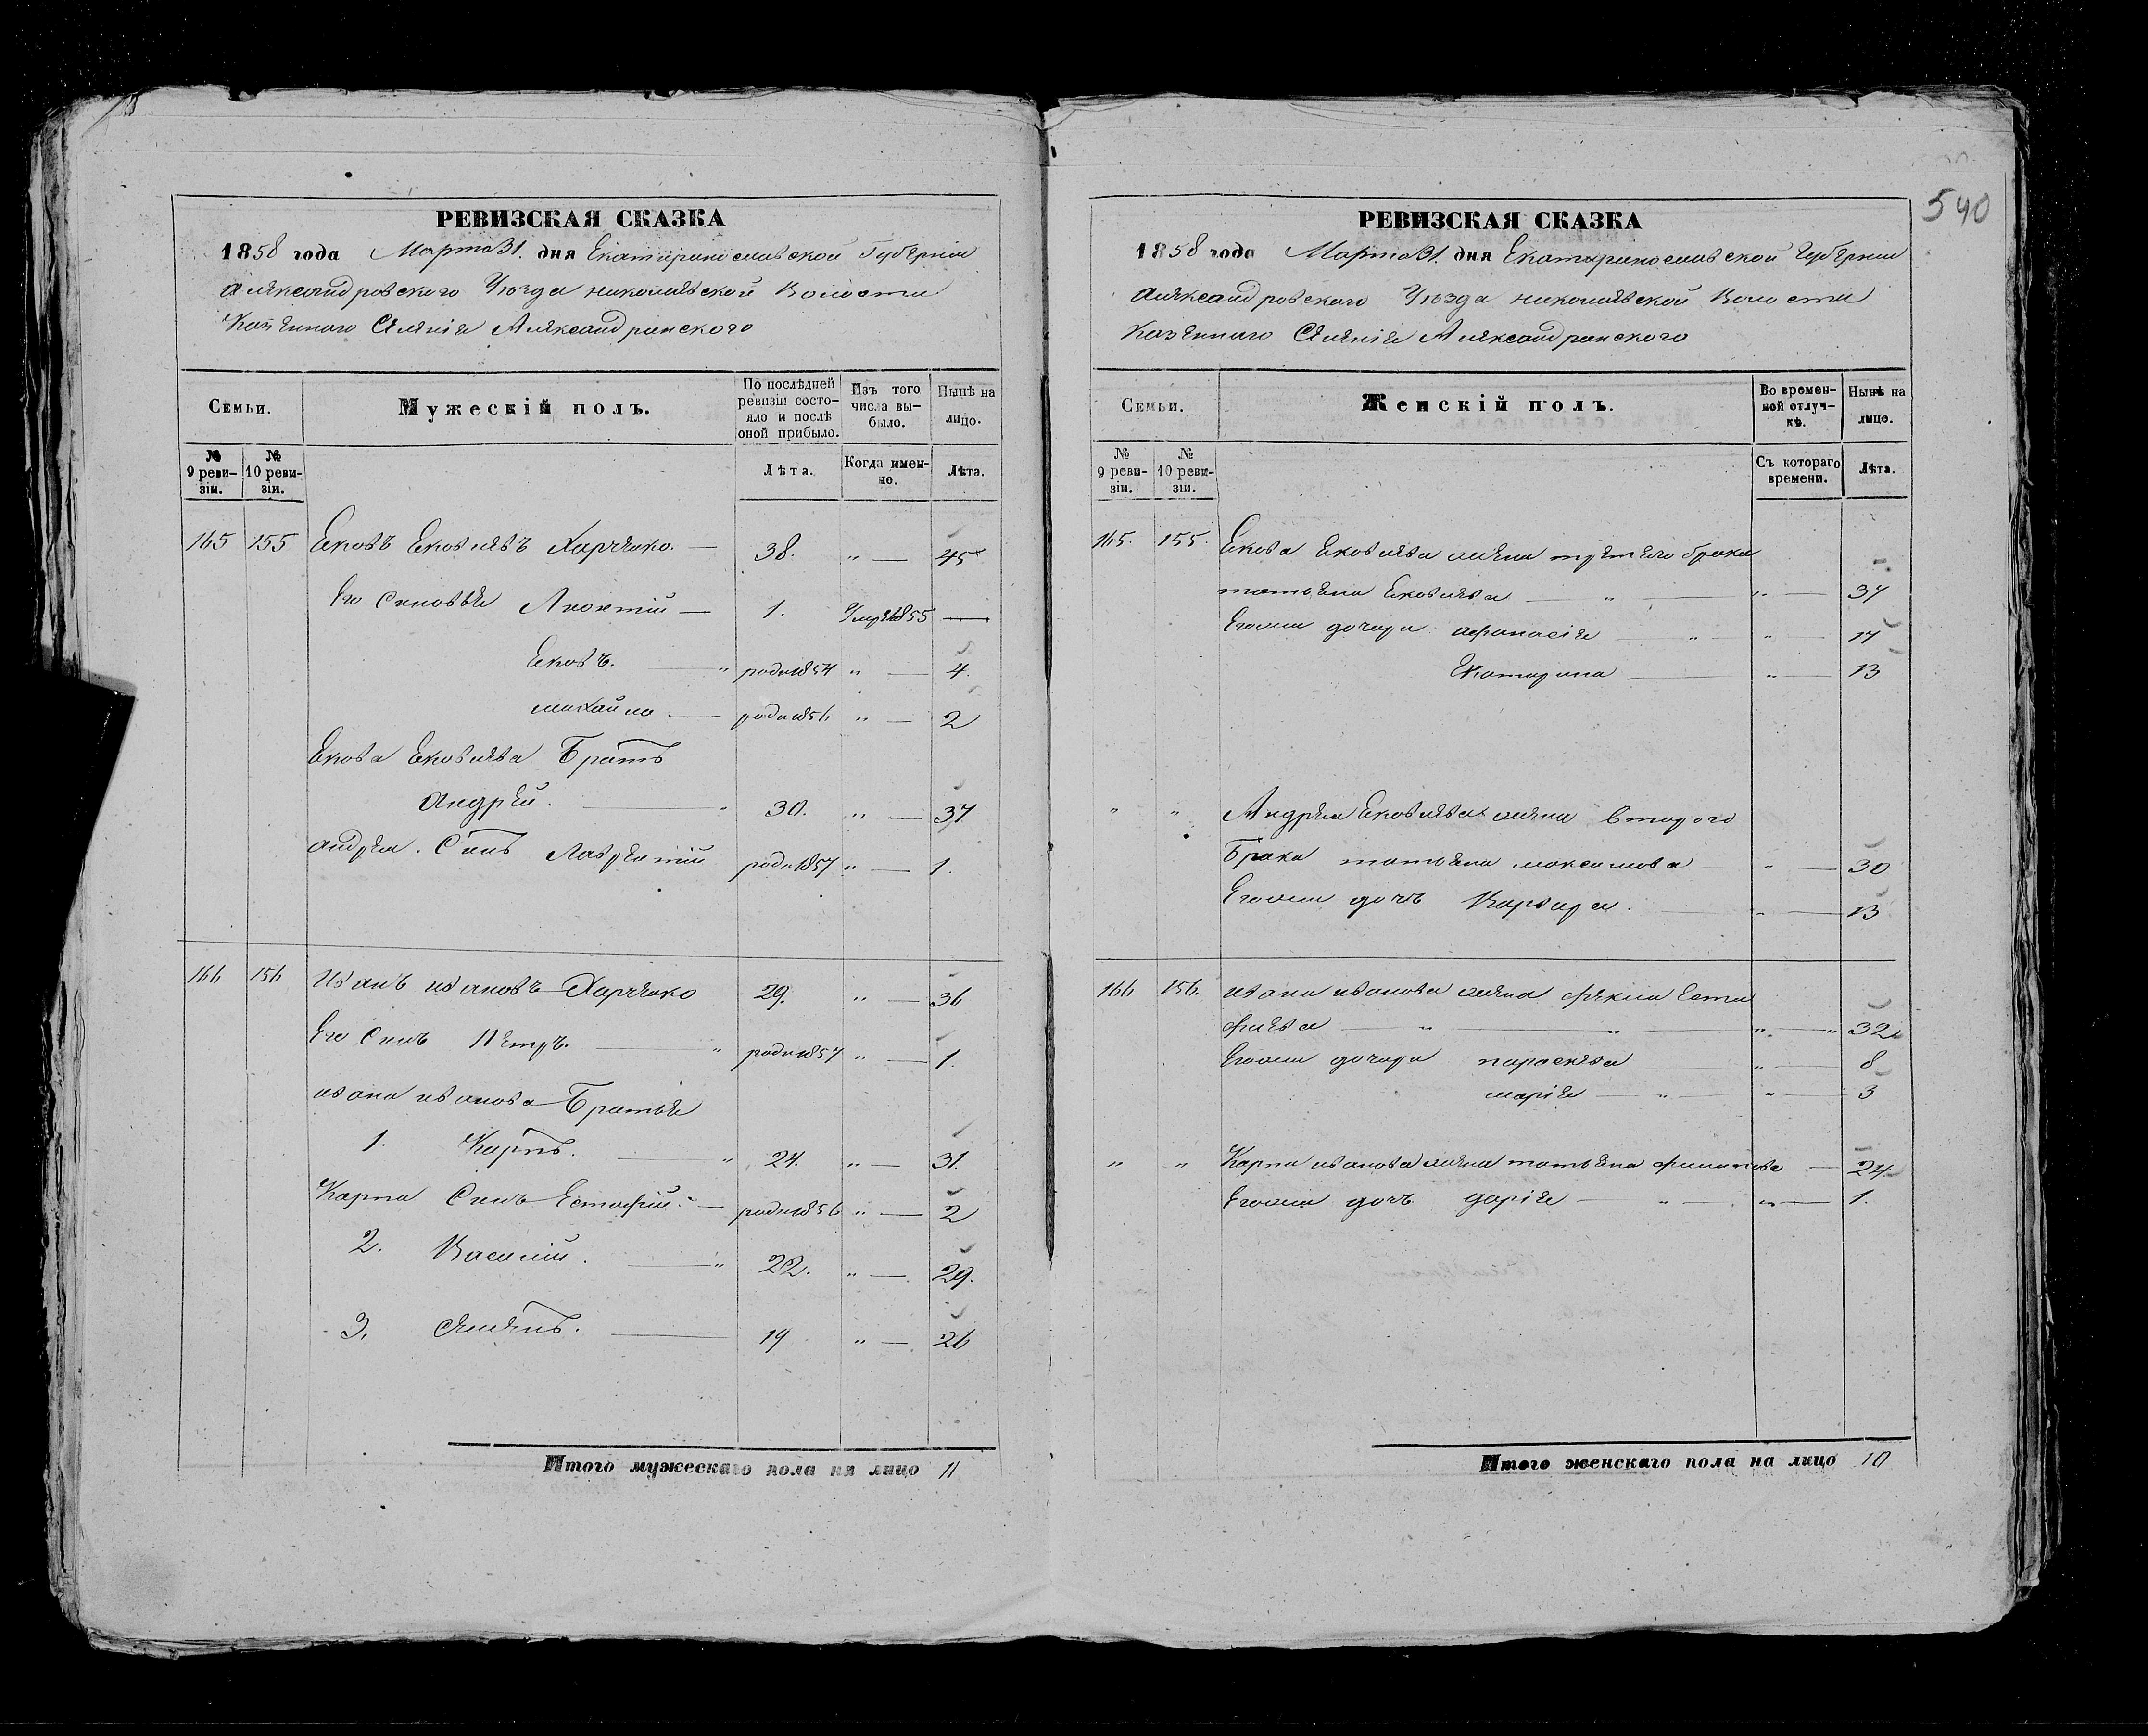 540
РЕВИЗСКАЯ СКАЗКА
1858 года Марта 31. дня Екатеринославской Губернии
Александровского Уезда николаевской Волости
Казенного Селения Александровского
Семьи.
Мужескій полъ.
По послѣдней ревизіи состояло и послѣ оной прибыло.
Изъ того числа выбыло.
Нынѣ на лицо.
№ 9 ревизіи.
№ 10 ревизіи.
Лѣта.
Когда именно.
Лѣта.
165 155 ЕковъЕковлевъ Харченко. — 38. " — 45
Его Сыновья Леонтий — 1. Умре 1855 —
Ековъ. — " роди 1854 " — 4.
михайло — роди 1856 " — 2
ЕковаЕковлева Братъ
Андрей. — " 30. " — 37
андрея. Сынъ Лаврентий роди 1857 " — 1.
166 156 Иванъ ивановъ Харченко 29. " — 36
Его Сынъ Петръ. — " роди 1857 " — 1.
ивана иванова Братья
1. Карпъ. — " 24. " — 31.
Карпа Сынъ Естафий. — роди 1856 " — 2
2. Василий. — " 22. " — 29.
3. Семенъ. — 19 " — 26
Итого мужескаго пола на лицо 11
РЕВИЗСКАЯ СКАЗКА
1858 года Марта 31. дня Екатеринославской Губернии
Александровского Уезда николаевской Волости
Казенного Селения Александровского
Семьи.
Женскій полъ.
Во временной отлучкѣ.
Нынѣ на лицо.
№ 9 ревизіи.
№ 10 ревизіи.
Съ котораго времени.
Лѣта.
165. 155. ЕковаЕковлева жена третего брака
татьяна Ековлева — " — " — 37
Егоже дочери афанасия — " — " — 17
Екатерина — " — 13
" " Андрея Ековлева жена второго
Брака татьяна максимова " — 30
Егоже дочь Варвара. — " — 13
166 156. ивана иванова жена фекла Еста
фиева — " — " — " — " 32
Егоже дочери параскева — " — 8
мария — " — " — 3
" " Карпа иванова жена татьяна филипова — 24
Егоже дочь дария — " — " — 1.
Итого женскаго пола на лицо 10